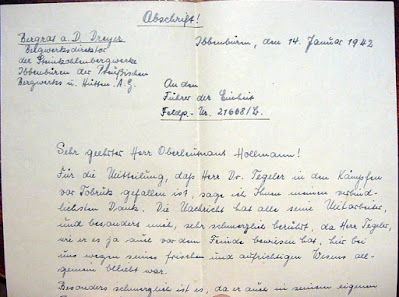 Abschrift!
Bergrat a. D. Dreyer
Bergwerksdirektor
der Steinkohlenbergwerke
Ibbenbüren der Preußischen
Bergwerks u. Hütten A.G.
Ibbenbüren, den 14. Januar 1942
An den
Führer der Einheit
Feldp.-Nr. 21668/C.
Sehr geehrter Herr Oberleutnant Hollmann!
Für die Mitteilung, daß Herr Dr. Tegeler in den Kämpfen
vor Tobruk gefallen ist, sage ich Ihnen meinen verbind-
lichsten Dank. Die Nachricht hat alle seine Mitarbeiter,
und besonders mich, sehr schmerzlich berührt, da Herr Tegeler,
wie er es ja auch vor dem Feinde bewiesen hat, hier bei
uns wegen seines frischen und aufrichtigen Wesens all-
gemein beliebt war.
Besonders schmerzlich ist es, da er auch in seinem eigenen